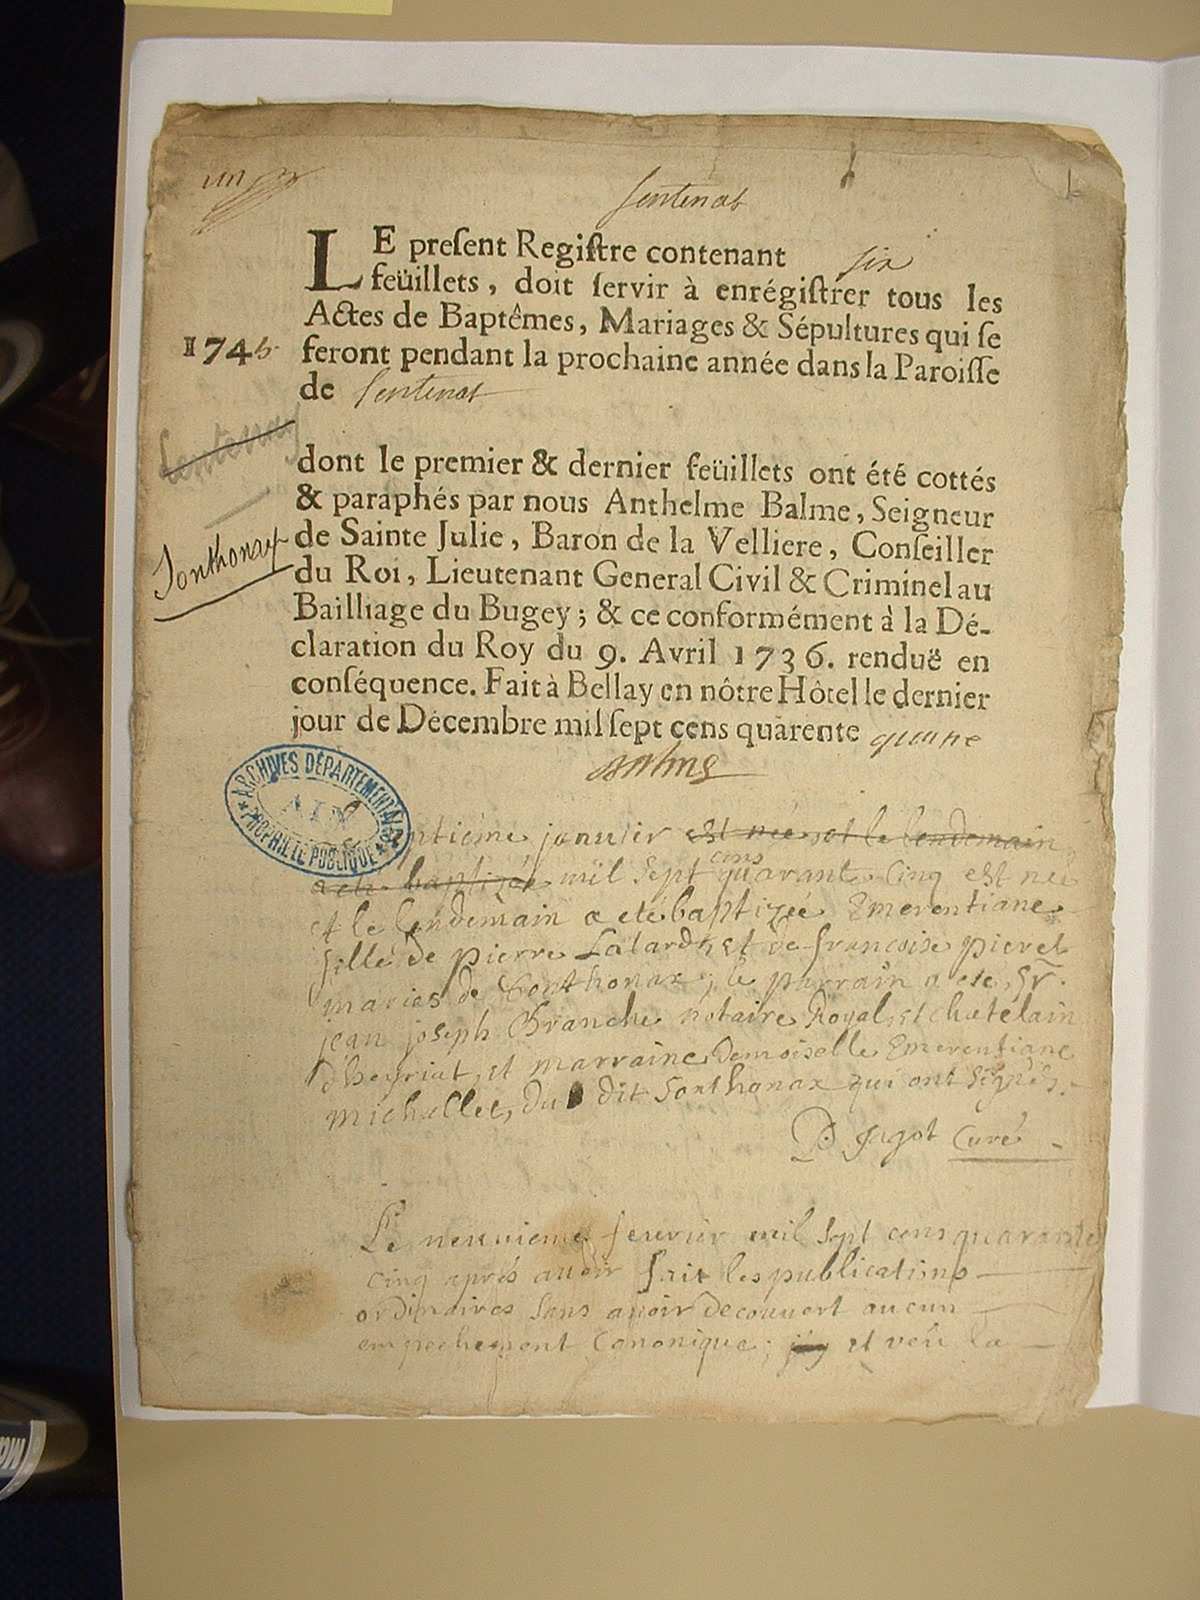 un
sentenat
LE present Registre contenant six
feüillets, doit servir à enrégistrer tous les
Actes de Baptêmes, Mariages & Sépultures qui se
1745 feront pendant la prochaine année dans la Paroisse
de sentenat
Lentenay
dont le premier & dernier feüillets ont été cottés
& paraphés par nous Anthelme Balme, Seigneur
Sonthonay
de Sainte Julie, Baron de la Velliere, Conseiller
du Roi, Lieutenant General Civil & Criminel au
Bailliage du Bugey; & ce conformément à la Dé-
claration du Roy du 9. Avril 1736. renduë en
conséquence. Fait à Bellay en nôtre Hôtel le dernier
jour de Décembre mil sept cens quarente quatre
Balme
ARCHIVES DÉPARTEMENTALES
AIN
PROPRIÉTÉ PUBLIQUE
tieme janvier est née et le lendemain
a eté baptizée mil sept cens quarante Cinq est née
et le lendemain a eté baptizée Emerentiane
fille de pierre Lalard, et de francoise pieret
mariés de Sonthonax; le parrain a eté, Sr.
jean joseph Branche notaire Royal, et chatelain
d'heyriat, et marraine Demoiselle Emerentiane
michallet, du dit Sonthonax qui ont signés.
P. Jagot Curé
Le neuvieme fevrier mil sept cens quarante
cinq après avoir fait les publications
ordinaires sans avoir decouvert aucun
empechement Canonique; et veu la